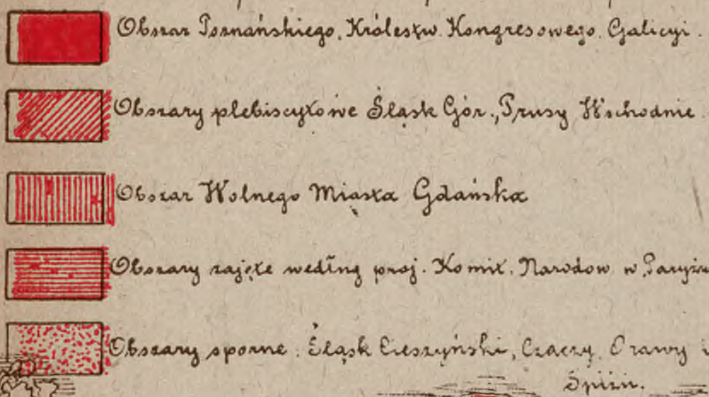 Obszar Poznańskiego, Królestw. Kongresowego, Galicyi.
Obszary plebiscytowe Śląsk Gór., Prusy Wschodnie
Obszar Wolnego Miasta Gdańska
Obszary zajęte według proj. Komit. Narodow. w Paryżu
Obszary sporne: Śląsk Cieszyński, Czaczy, Orawy i
Spiżu.